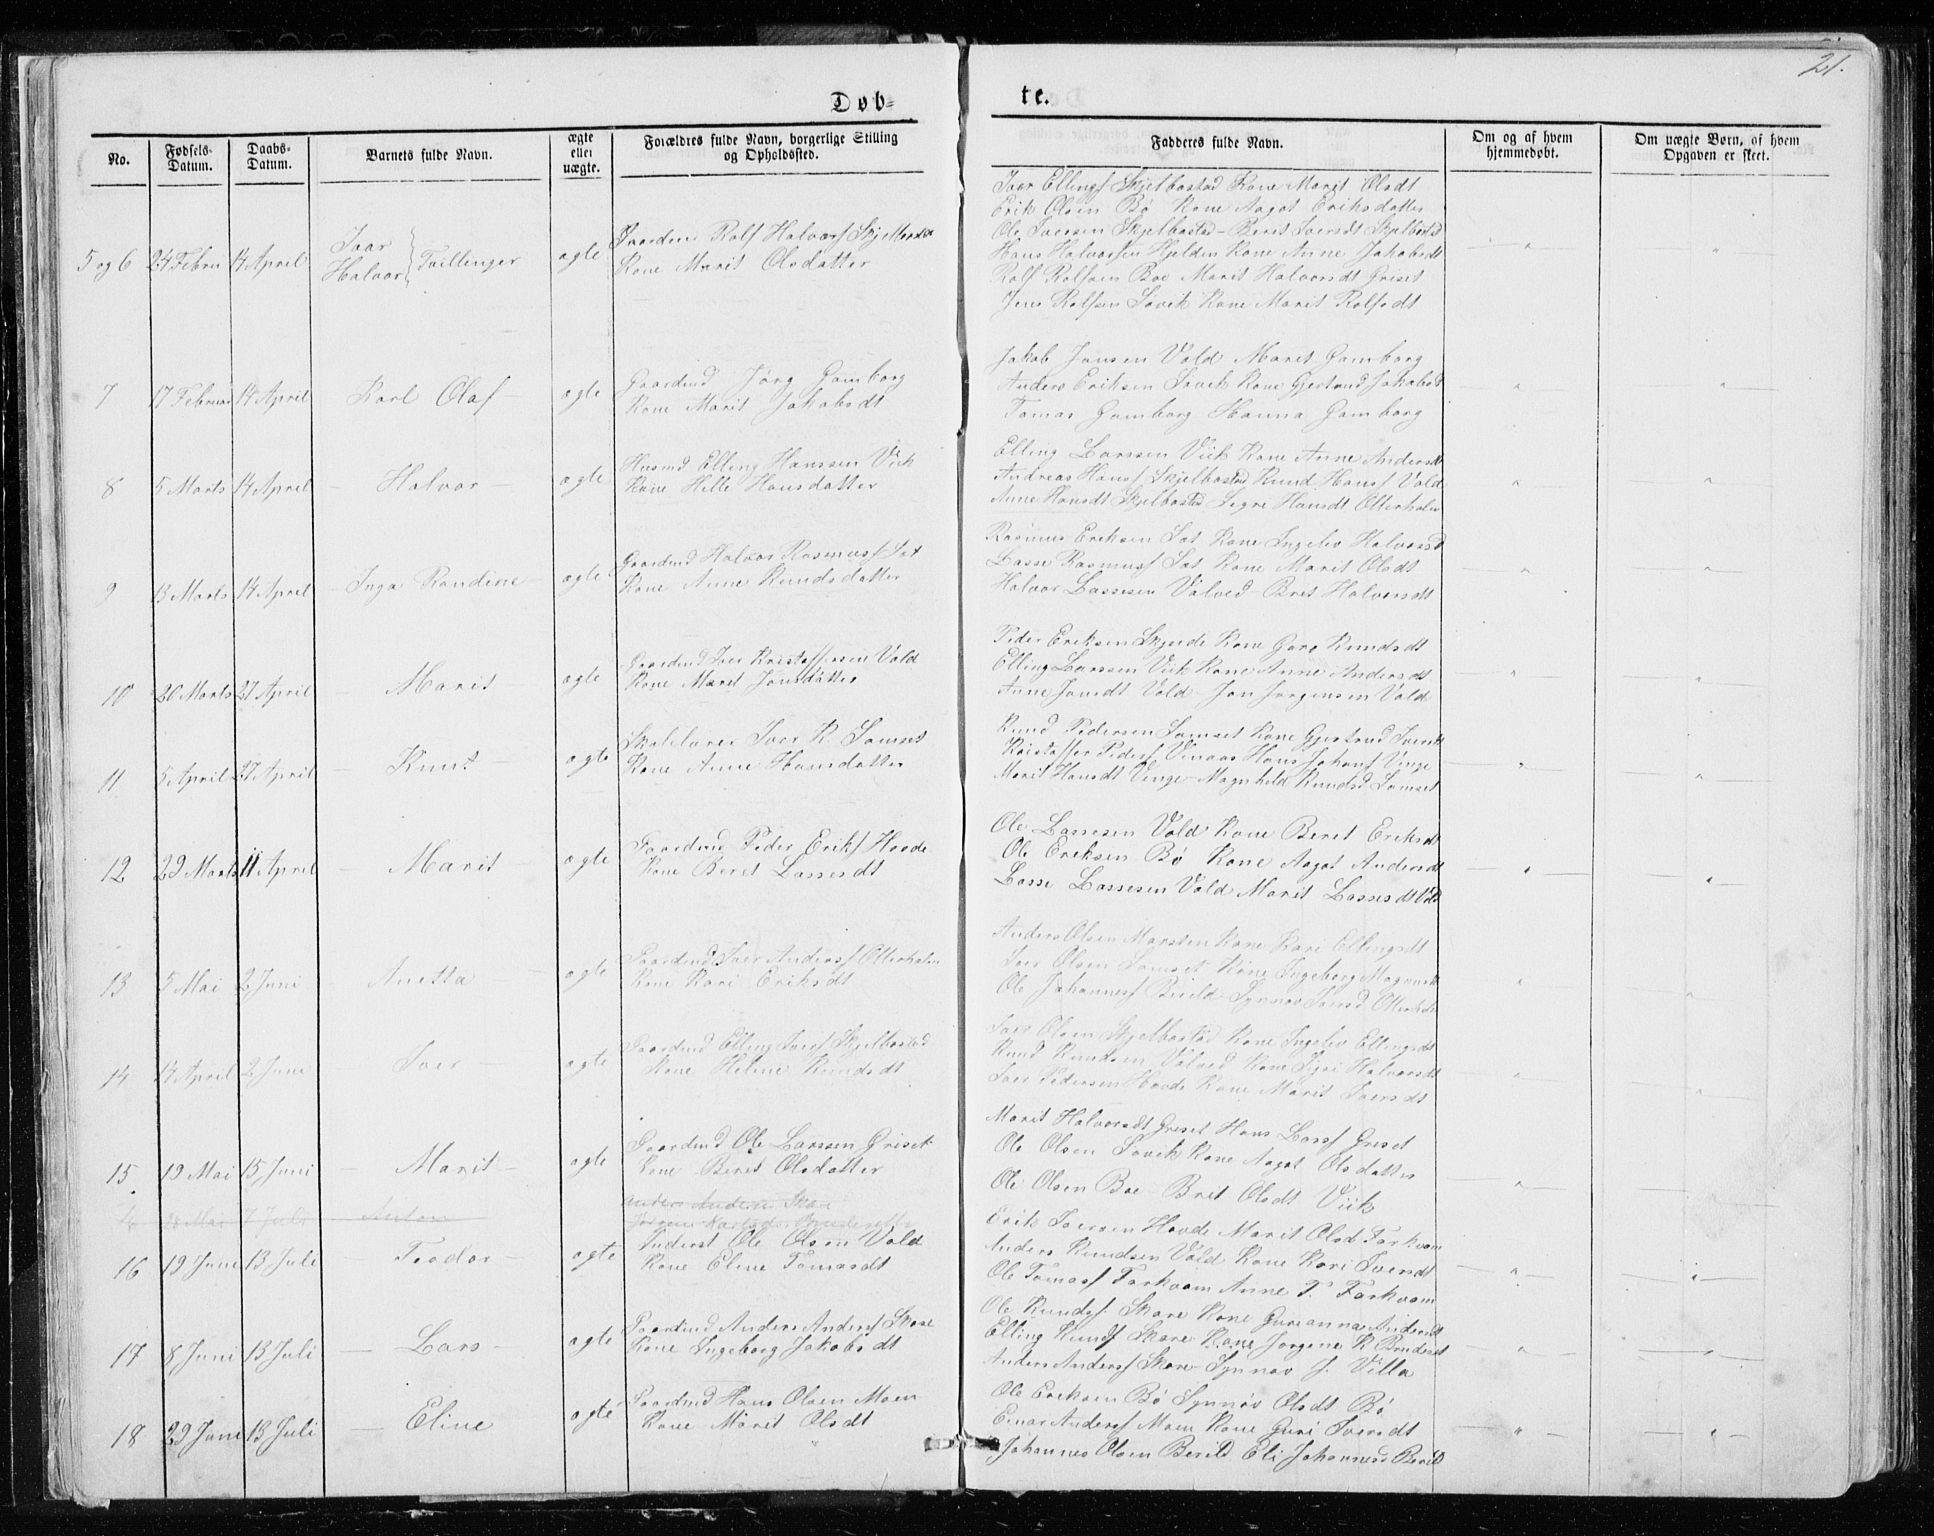 21.
Døb-
te.
No.
Fødsels-
Datum.
Daabs-
Datum.
Barnets fulde Navn.
ægte
eller
uægte.
Forældres fulde Navn, borgerlige Stilling
og Opholdssted.
Faddernes fulde Navn.
Om og af hvem
hjemmedøbt.
Om uægte Børn, af hvem
Opgaven er skeet.
5 og 6 24 Febru 14 April Ivar Halvor Tvillinger ægte
Gaardmd Rolf Halvors Skjelbostad
Kone Marit Olsdatter
Iver Ellings Skjelbostad Kone Marit Olsdt
Erik Olsen Bø Kone Aagot Eriksdatter
Ole Iversen Skjelbostad - Berit Iversdt Skjelbostad
Hans Halvorsen Hjelden Kone Anne Jakobsdt
Rolf Rolfsen Boe Marit Halvorsdt Griset
Jens Rolfsen Sovik Kone Marit Rolfsdt
7 17 Februar 14 April Karl Olaf ægte
Gaardmd Jørg Gamborg
Kone Marit Jakobsdt
Jakob Jonsen Vold Marit Gamborg
Anders Eriksen Sovik Kone Gjertrud Jakobsd
Tomas Gamborg Hanna Gamborg
8 5 Marts 14 April - Halvor - ægte
Husmd Elling Hanssen Viik
Kone Hille Hansdatter
Elling Larssen Viik Kone Anne Andersdt
Andreas Hansf Skjelbostad Knud Hansf Vold
Anne Hansdt Skjelbostad Sigre Hansdt Otterholm
9 13 Marts 14 April - Inga Randine - ægte
Gaardmd Halvor Rasmusf Sat
Kone Anne Knudsdatter
Rasmus Eriksen Sat Kone Ingelev Halvorsd
Lasse Rasmusf Sat Kone Marit Olsdt
Halvor Lassesen Valved - Brit Halvorsdt
10 20 Marts 27 April - Marit - ægte
Gaardmd Iver Kristoffersen Vold
Kone Maret Jonsdatter
Peder Eriksen Skjende Kone Guro Knudsdt
Elling Larssen Viik Kone Anne Andersdt
Anne Jonsdt Vold - Jon Jorgensen Vold
11 5 April 27 April - Knut - ægte
Skolelærer Iver K. Samset
Kone Anne Hansdatter
Knud Pedersen Samset Kone Gjertrud Iversdt
Kristoffer Pedersf Vinaas Hans Johansf Vinge
Marit Hansdt Vinge - Magnhild Knudsd Samset
12 29 Marts 11 April - Marit ægte
Gaardmd Peder Eriksf Hovde
Kone Beret Lassesdt
Ole Lassesen Vold Kone Beret Eriksdt
Ole Eriksen Bø Kone Aagot Andersdt
Lasse Lassesen Vold Marit Lassesdt Vold
13 5 Mai 2 Juni - Anetta - ægte
Gaardmd Iver Andersf Otterholm
Kone Kari Eriksdt
Anders Olsen Marsten Kone Kari Ellingsdt
Iver Olsen Samset Kone Ingeborg Magnusdt
Ole Johannesf Berild - Synnøv Iversd Otterholm
14 14 April 2 Juni - Iver - ægte
Gaardmd Elling Iversf Skjelbostad
Kone Helene Knudsdt
Iver Olsen Skjelbostad Kone Ingelev Ellingsdt
Knud Knudsen Valved Kone Sigri Halvorsdt
Iver Pedersen Hovde Kone Marit Iversdt
15 19 Mai 15 Juni - Marit - ægte
Gaardmd Ole Larssen Griset
Kone Beret Olsdatter
Marit Halvorsdt Griset Hans Larsf Griset
Ole Olsen Sovik Kone Aagot Olsdatter
Ole Olsen Boe Brit Olsdt Viik
16 Mai 7 Juli Anton
Anders Skar
16 19 Juni 13 Juli - Teodor - ægte
Inderst Ole Olsen Vold
Kone Eline Tomasdt
Erik Iversen Hovde Marit Olsd Forkvam
Anders Knudsen Vold Kone Kari Iversdt
Ole Tomasf Torkvam Anne T. Forkvam
17 8 Juni 13 Juli - Lars - ægte
Gaardmd Anders Andersf Skare
Kone Ingeborg Jakobsdt
Ole Knudsf. Skare Kone Gurianna Andersdt
Elling Knudf Skare Kone Jorgene K Brudeset
Anders Andersf Skare - Synnøv J. Villa
18 29 Juni 13 Juli - Eline ægte
Gaardmd Hans Olsen Moen
Kone Marit Olsdt
Ole Eriksen Bø Synnøv Olsdt Bø
Einar Andersf Moen Kone Guri Iversdt
Johannes Olsen Berild Eli Johannesd Berild